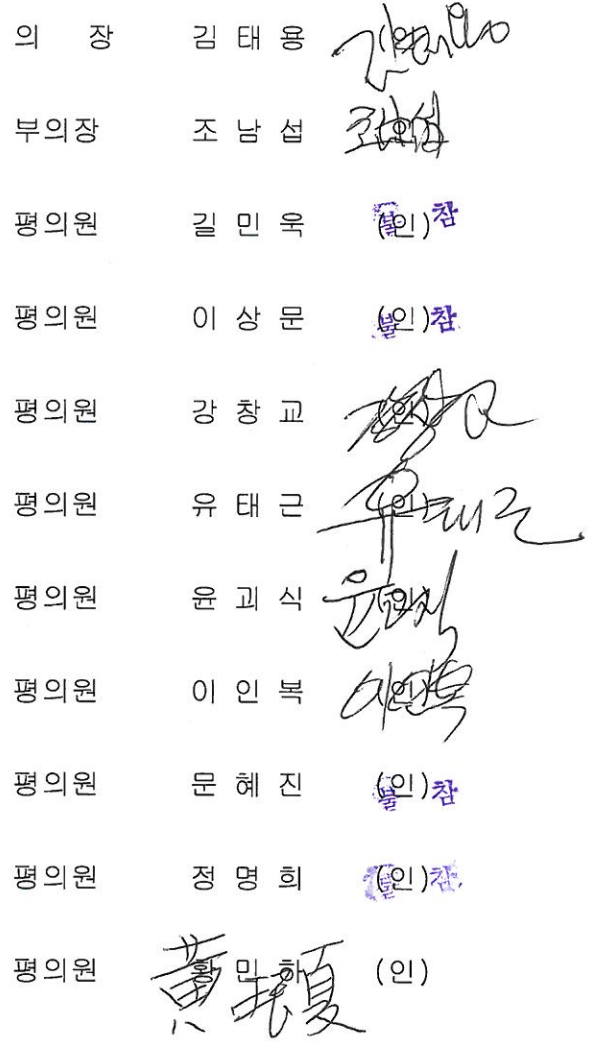 의 장 김 태 용 (인) 김태용
부의장 조 남 섭 (인) 조남섭
평의원 길 민 욱 (인) 불참
평의원 이 상 문 (인) 불참
평의원 강 창 교 (인) 강창교
평의원 유 태 근 (인) 유태근
평의원 윤 괴 식 (인) 윤괴식
평의원 이 인 복 (인) 이인복
평의원 문 혜 진 (인) 불참
평의원 정 명 희 (인) 불참
평의원 황 민 하 (인) 黃珉夏